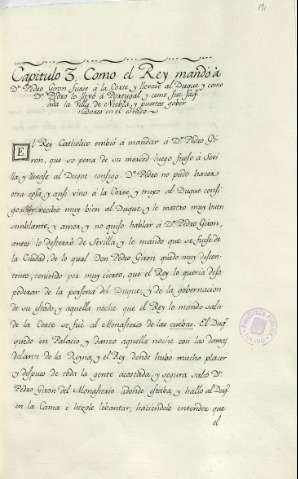 Capitulo 3. Como el Rey mandó à
Dn. Pedro Giron fuese a la Corte, y llevase al Duque, y como
Dn. Pedro lo llevó a Portugal, y como fue
la Villa de Niebla, y puertos
en el estado
El Rey Catholico embió a mandar a Dn. Pedro Gi-
ron, que so pena de su merced luego fuese a Sevi-
lla, y llevase al Duque consigo Dn. Pedro no pudo hacer
otra cosa, y ansi vino á la Corte, y truxo al Duque consi-
go, recibió muy bien al Duque, y le mostro muy buen
semblante, y amor, y no quiso hablar à Dn. Pedro Giron,
antes lo desterró de Sevilla, y le mando que se fuese de
la Ciudad, de lo qual Don Pedro Giron quedó muy descon-
tento, teniendo por muy cierto, que el Rey lo queria desa
poderar de la persona del Duque, y de la gobernacion
de su estado, y aquella noche que el Rey le mandó salir
de la Corte se fué al Monasterio de las cuebas. El Duq.
quedó en Palacio, y danzó aquella noche con las Damas
delante de la Reyna, y el Rey donde hubo mucho placer
y despues de toda la gente acostada, y segura salió Dn.
Pedro Giron del Monasterio donde estaba, y halló al Duq.
en la Cama è hizole lebantar, haciendole entender que
el